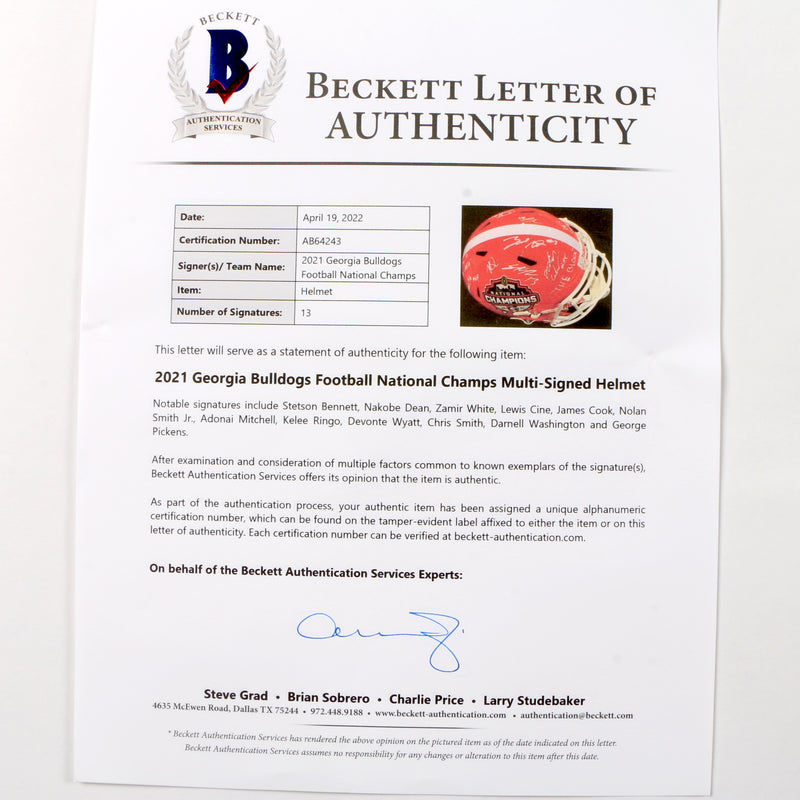 BECKETT
B
AUTHENTICATION
SERVICES
BECKETT LETTER OF
AUTHENTICITY
Date: April 19, 2022
Certification Number: AB64243
Signer(s)/ Team Name: 2021 Georgia Bulldogs
Football National Champs
Item: Helmet
Number of Signatures: 13
NATIONAL
CHAMPIONS
This letter will serve as a statement of authenticity for the following item:
2021 Georgia Bulldogs Football National Champs Multi-Signed Helmet
Notable signatures include Stetson Bennett, Nakobe Dean, Zamir White, Lewis Cine, James Cook, Nolan
Smith Jr., Adonai Mitchell, Kelee Ringo, Devonte Wyatt, Chris Smith, Darnell Washington and George
Pickens.
After examination and consideration of multiple factors common to known exemplars of the signature(s),
Beckett Authentication Services offers its opinion that the item is authentic.
As part of the authentication process, your authentic item has been assigned a unique alphanumeric
certification number, which can be found on the tamper-evident label affixed to either the item or on this
letter of authenticity. Each certification number can be verified at beckett-authentication.com.
On behalf of the Beckett Authentication Services Experts:
Steve Grad • Brian Sobrero • Charlie Price • Larry Studebaker
4635 McEwen Road, Dallas TX 75244 • 972.448.9188 • www.beckett-authentication.com • authentication@beckett.com
* Beckett Authentication Services has rendered the above opinion on the pictured item as of the date indicated on this letter.
Beckett Authentication Services assumes no responsibility for any changes or alteration to this item after this date.